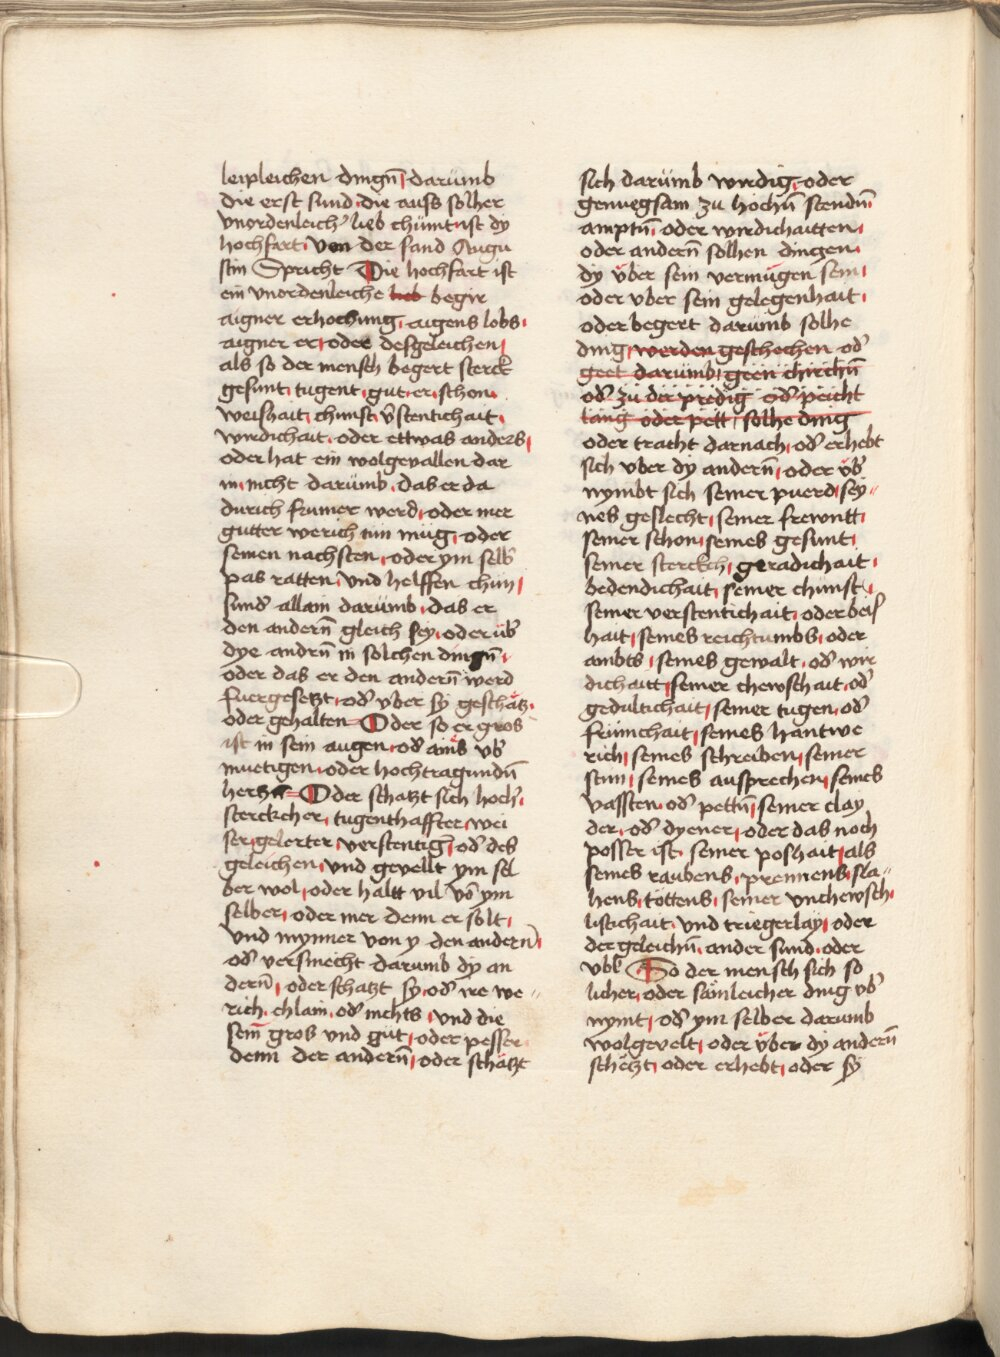 leipleichen dingn̄ darumb
die erst sund die auss solher
vnordenleich͛ lieb chumt ist dy
hochfart Von der sand Augu
stin Spricht Die hochfart ist
ein vnordenleiche lieb begir
aigner erhochung aigens lobs
aigner er oder desgeleichen
als so der mensch begert sterck
gesunt tugent gut er schon
weishait chunst v͛stentichait
wirdichait oder ettwas anders
oder hat ein wolgevallen dar
in nicht darumb das er da
durich frumer werd oder mer
gutter werich tun mug oder
seinen nachsten oder ym selb͛
pas ratten vnd helffen chun
sund͛ allain darumb das er
den andern̄ gleich sey oder üb͛
dye andrn̄ in solchen dingn̄
oder das er den andern̄ werd
fuergesetzt od͛ vber sy geschätz
oder gehalten Oder so er gros
ist in sein augen od͛ ains vb͛
muetigen oder hochtragundn̄
hertzn̄ Oder schatzt sich hoch͛
sterckcher tugenthaffter wei
ser gelerter verstentig͛ od͛ des
geleichen vnd gevellt ym sel
ber wol oder haltt vil vō ym
selber oder mer denn er solt
vnd mynner von y den andern̄
od͛ versmecht darumb dy an
dern̄ oder schatzt sy od͛ ire we
rich chlain od͛ nichts vnd die
sein̄ gros vnd gut oder pesser
denn der andern̄ oder schätzt
sich darumb wirdig oder
genuegsam zu hochn̄ stendn̄
amptn̄ oder wirdichaitten
oder andern̄ solhen dingen
dy vber sein vermugen sein
oder vber sein gelegenhait
oder begert darumb solhe
ding werden geschechen od͛
geet darumb geen chirchn̄
od͛ zu der predig od͛ peicht
lang oder pett solhe ding
oder tracht darnach od͛ erhebt
sich vber dy andern̄ oder vb͛
nymbt sich seiner puerd sey
nes geslecht seiner frewntt
seiner schon seines gesunt
seiner sterckch geradichait
bedendichait seiner chunst
seiner verstentichait oder beis
hait seines reichtumbs oder
ambts seines gewalt od͛ wir
dichaitt seiner chewschait od͛
gedultichait seiner tugen od͛
frumchait seines hantwe
rich seines schreiben seiner
stim seines aussprechen seines
vassten od͛ pettn̄ seiner clay
der od͛ dyener oder das noch
posser ist seiner poshait als
seines raubens prennens sla
hens töttens seiner vnchewsch
listichait vnd triegerlay oder
der geleichn̄ ander sund oder
vbl So der mensch sich so
licher oder sämleicher ding vb͛
nymt od͛ ym selber darumb
wolgevelt oder vber dy andern̄
schetzt oder erhebt oder sy